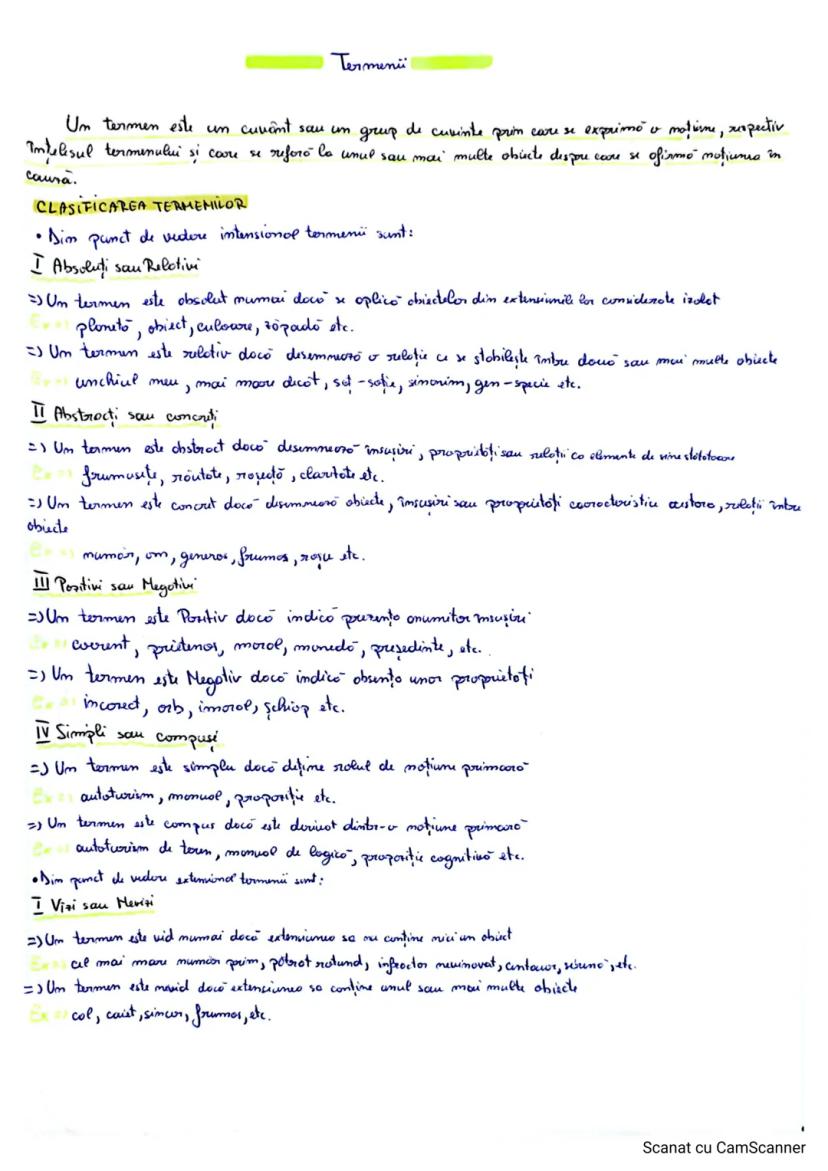 Termenii
Un termen este un cuvânt sau un grup de cuvinte prin care se exprimă o noțiune, respectiv
înțelesul termenului și care se referă la unul sau mai multe obiecte despre care se afirmă noțiunea în
cauză.
CLASIFICAREA TERMENILOR
• Din punct de vedere intensional termenii sunt:
I Absoluți sau Relativi
=) Un termen este absolut numai dacă se aplică obiectelor din extensiunile lor considerate izolat
Ex => planetă, obiect, culoare, zăpadă etc.
=) Un termen este relativ dacă desemnează o relație ce se stabilește între două sau mai multe obiecte
Ex => unchiul meu, mai mare decât, soț - soție, sinonim, gen - specie etc.
II Abstracți sau concreți
=) Un termen este abstract dacă desemnează însușiri, proprietăți sau relații ca elemente de sine stătătoare
Ex => frumusețe, răutate, roșeață, claritate etc.
=) Un termen este concret dacă desemnează obiecte, însușiri sau proprietăți caracteristice acestora, relații între
obiecte
Ex => număr, om, generos, frumos, roșu etc.
III Pozitivi sau Negativi
=) Un termen este Pozitiv dacă indică prezența anumitor însușiri
Ex => coerent, prietenos, moral, monedă, președinte, etc.
=) Un termen este Negativ dacă indică absența unor proprietăți
Ex => incorect, orb, imoral, șchiop etc.
IV Simpli sau compuși
=) Un termen este simplu dacă deține rolul de noțiune primară
Ex => autoturism, manual, propoziție etc.
=) Un termen este compus dacă este derivat dintr-o noțiune primară
Ex => autoturism de teren, manual de logică, propoziție cognitivă etc.
• Din punct de vedere extensional termenii sunt:
I Vizi sau Nevizi
=) Un termen este vid numai dacă extensiunea sa nu conține nici un obiect
Ex => cel mai mare număr prim, pătrat rotund, infractor nevinovat, centaur, sirenă, etc.
=) Un termen este nevid dacă extensiunea sa conține unul sau mai multe obiecte
Ex => cal, caiet, sincer, frumos, etc.
Scanat cu CamScanner